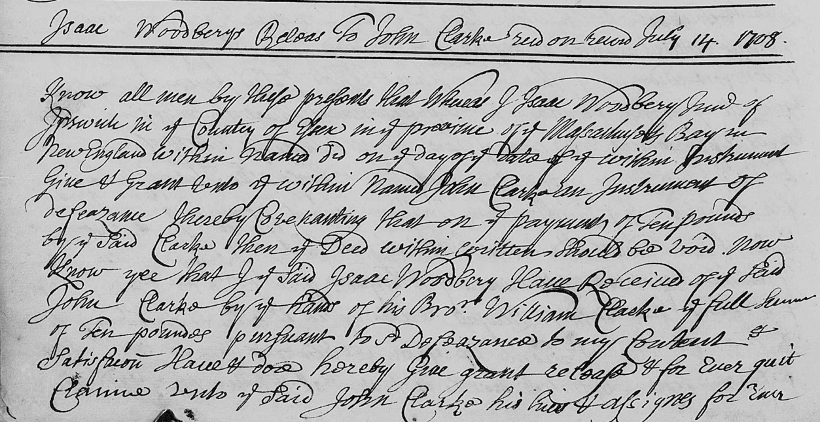 Isaac Woodberys Releas To John Clarke recd on record July 14. 1708.
Know all men by these presents that Wheras I Isaac Woodbery Junr of
Ipswich in ye County of Essex in ye province of ye Massachusets Bay in
New England within Named did on ye day of ye Date of ye within Instrument
Give & Grant unto ye within Named John Clarke an Instrument of
defeazance thereby Covenanting that on ye payment of Ten pounds
by ye Said Clarke then ye Deed within written should be void. Now
Know yee that I ye Said Isaac Woodbery Have Received of ye Said
John Clarke by ye hands of his Bror. William Clarke ye full Summ
of Ten poundes pursuant to sd Defeazance to my Content &
Satisfacon Have & doe hereby Give grant release & for Ever quit
Claime unto ye Said John Clarke his heires & assignes for Ever